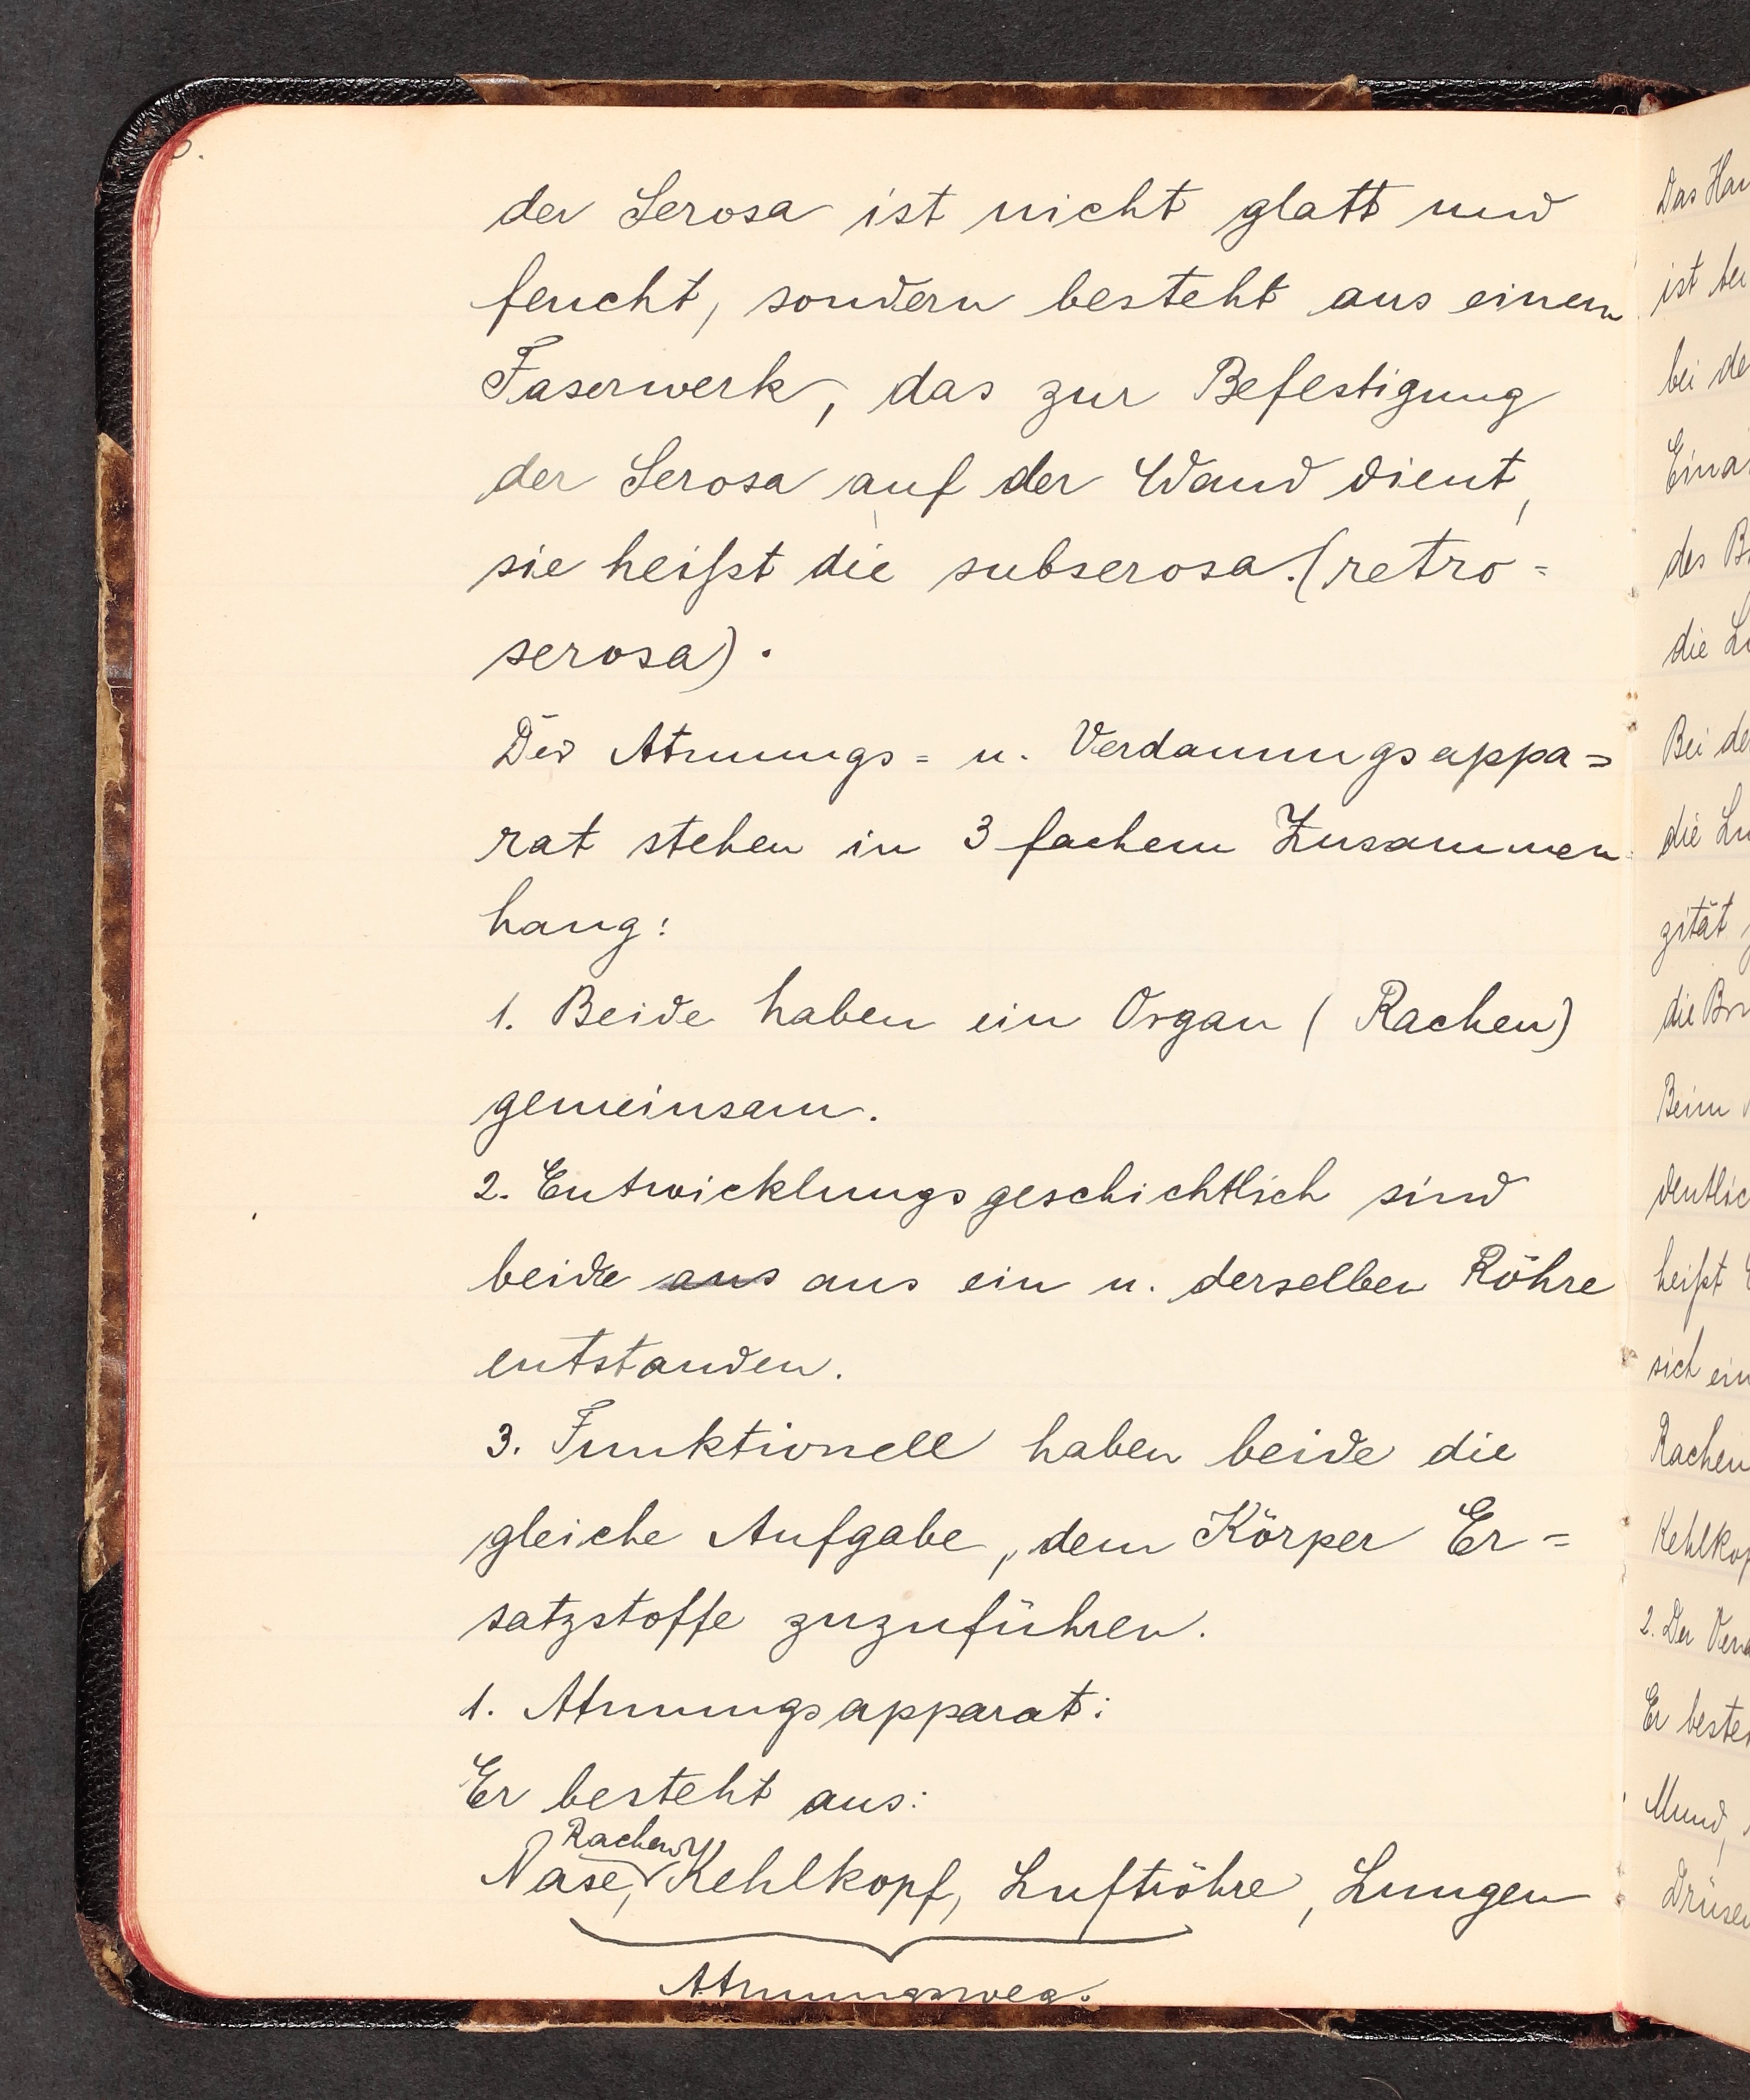 der Serosa ist nicht glatt und
feucht, sondern besteht aus einem
Faserwerk, das zur Befestigung
der Serosa auf der Wand dient,
sie heißt die subserosa. (retro=
serosa).
Der Atmungs= u. Verdauungsappa=
rat stehen in 3 fachem Zusammen
hang:
1. Beide haben ein Organ (Rachen)
gemeinsam.
2. Entwicklungsgeschichtlich sind
beide aus aus ein u. derselben Röhre
entstanden.
3. Funktionell haben beide die
gleiche Aufgabe, dem Körper Er=
satzstoffe zuzuführen.
1. Atmungsapparat:
Er besteht aus:
Rachen,
Nase, Kehlkopf, Luftröhre, Lungen
Atmungsweg.
Das
ist
bei
des
die
Bei
die
zität
die
Beim
heißt
sich
Rachen
2. Der
Er
Mund,